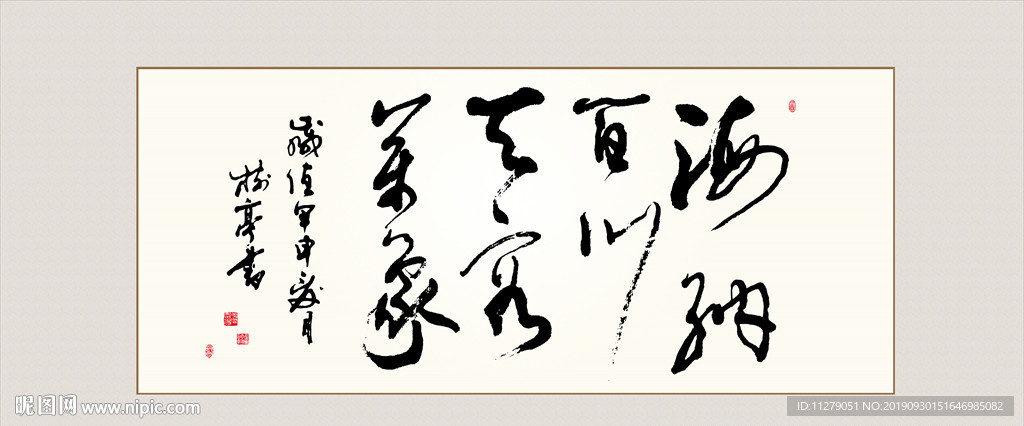 海納
百川
天容
萬象
歲值甲申夏月
樹亭書
昵图网 www.nipic.com
ID:11279051 NO:20190930151646985082